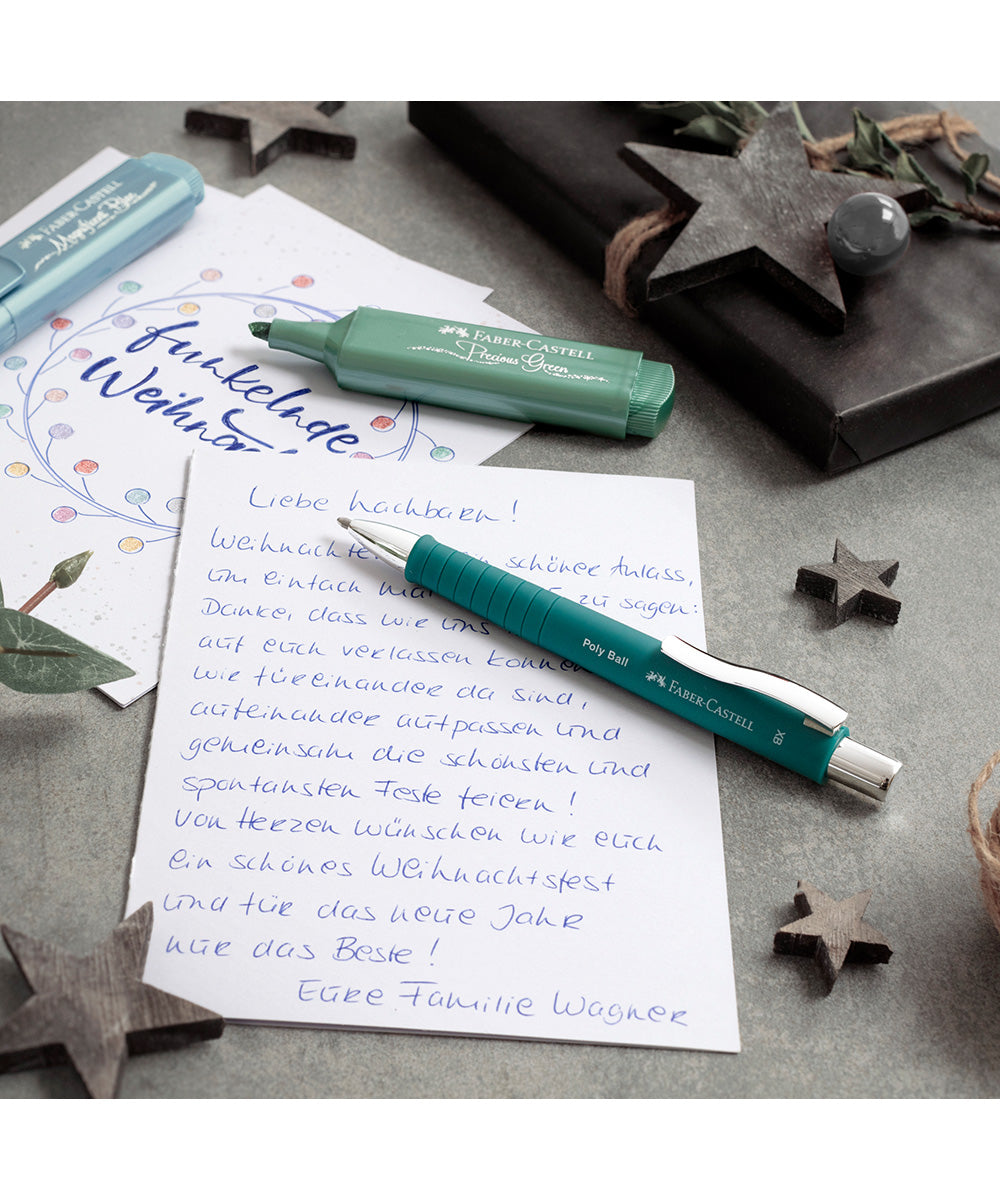 FABER-CASTELL
Magnificent Blue
funkelnde
FABER-CASTELL
Precious Green
Liebe Nachbarn!
schöner Anlass,
um einfach zu sagen:
Danke, dass wir uns
auf euch verlassen können
wir füreinander da sind,
aufeinander aufpassen und
gemeinsam die schönsten und
spontansten Feste feiern!
Von Herzen wünschen wir euch
ein schönes Weihnachtsfest
und für das neue Jahr
nur das Beste!
Eure Familie Wagner
Poly Ball
FABER-CASTELL
XB